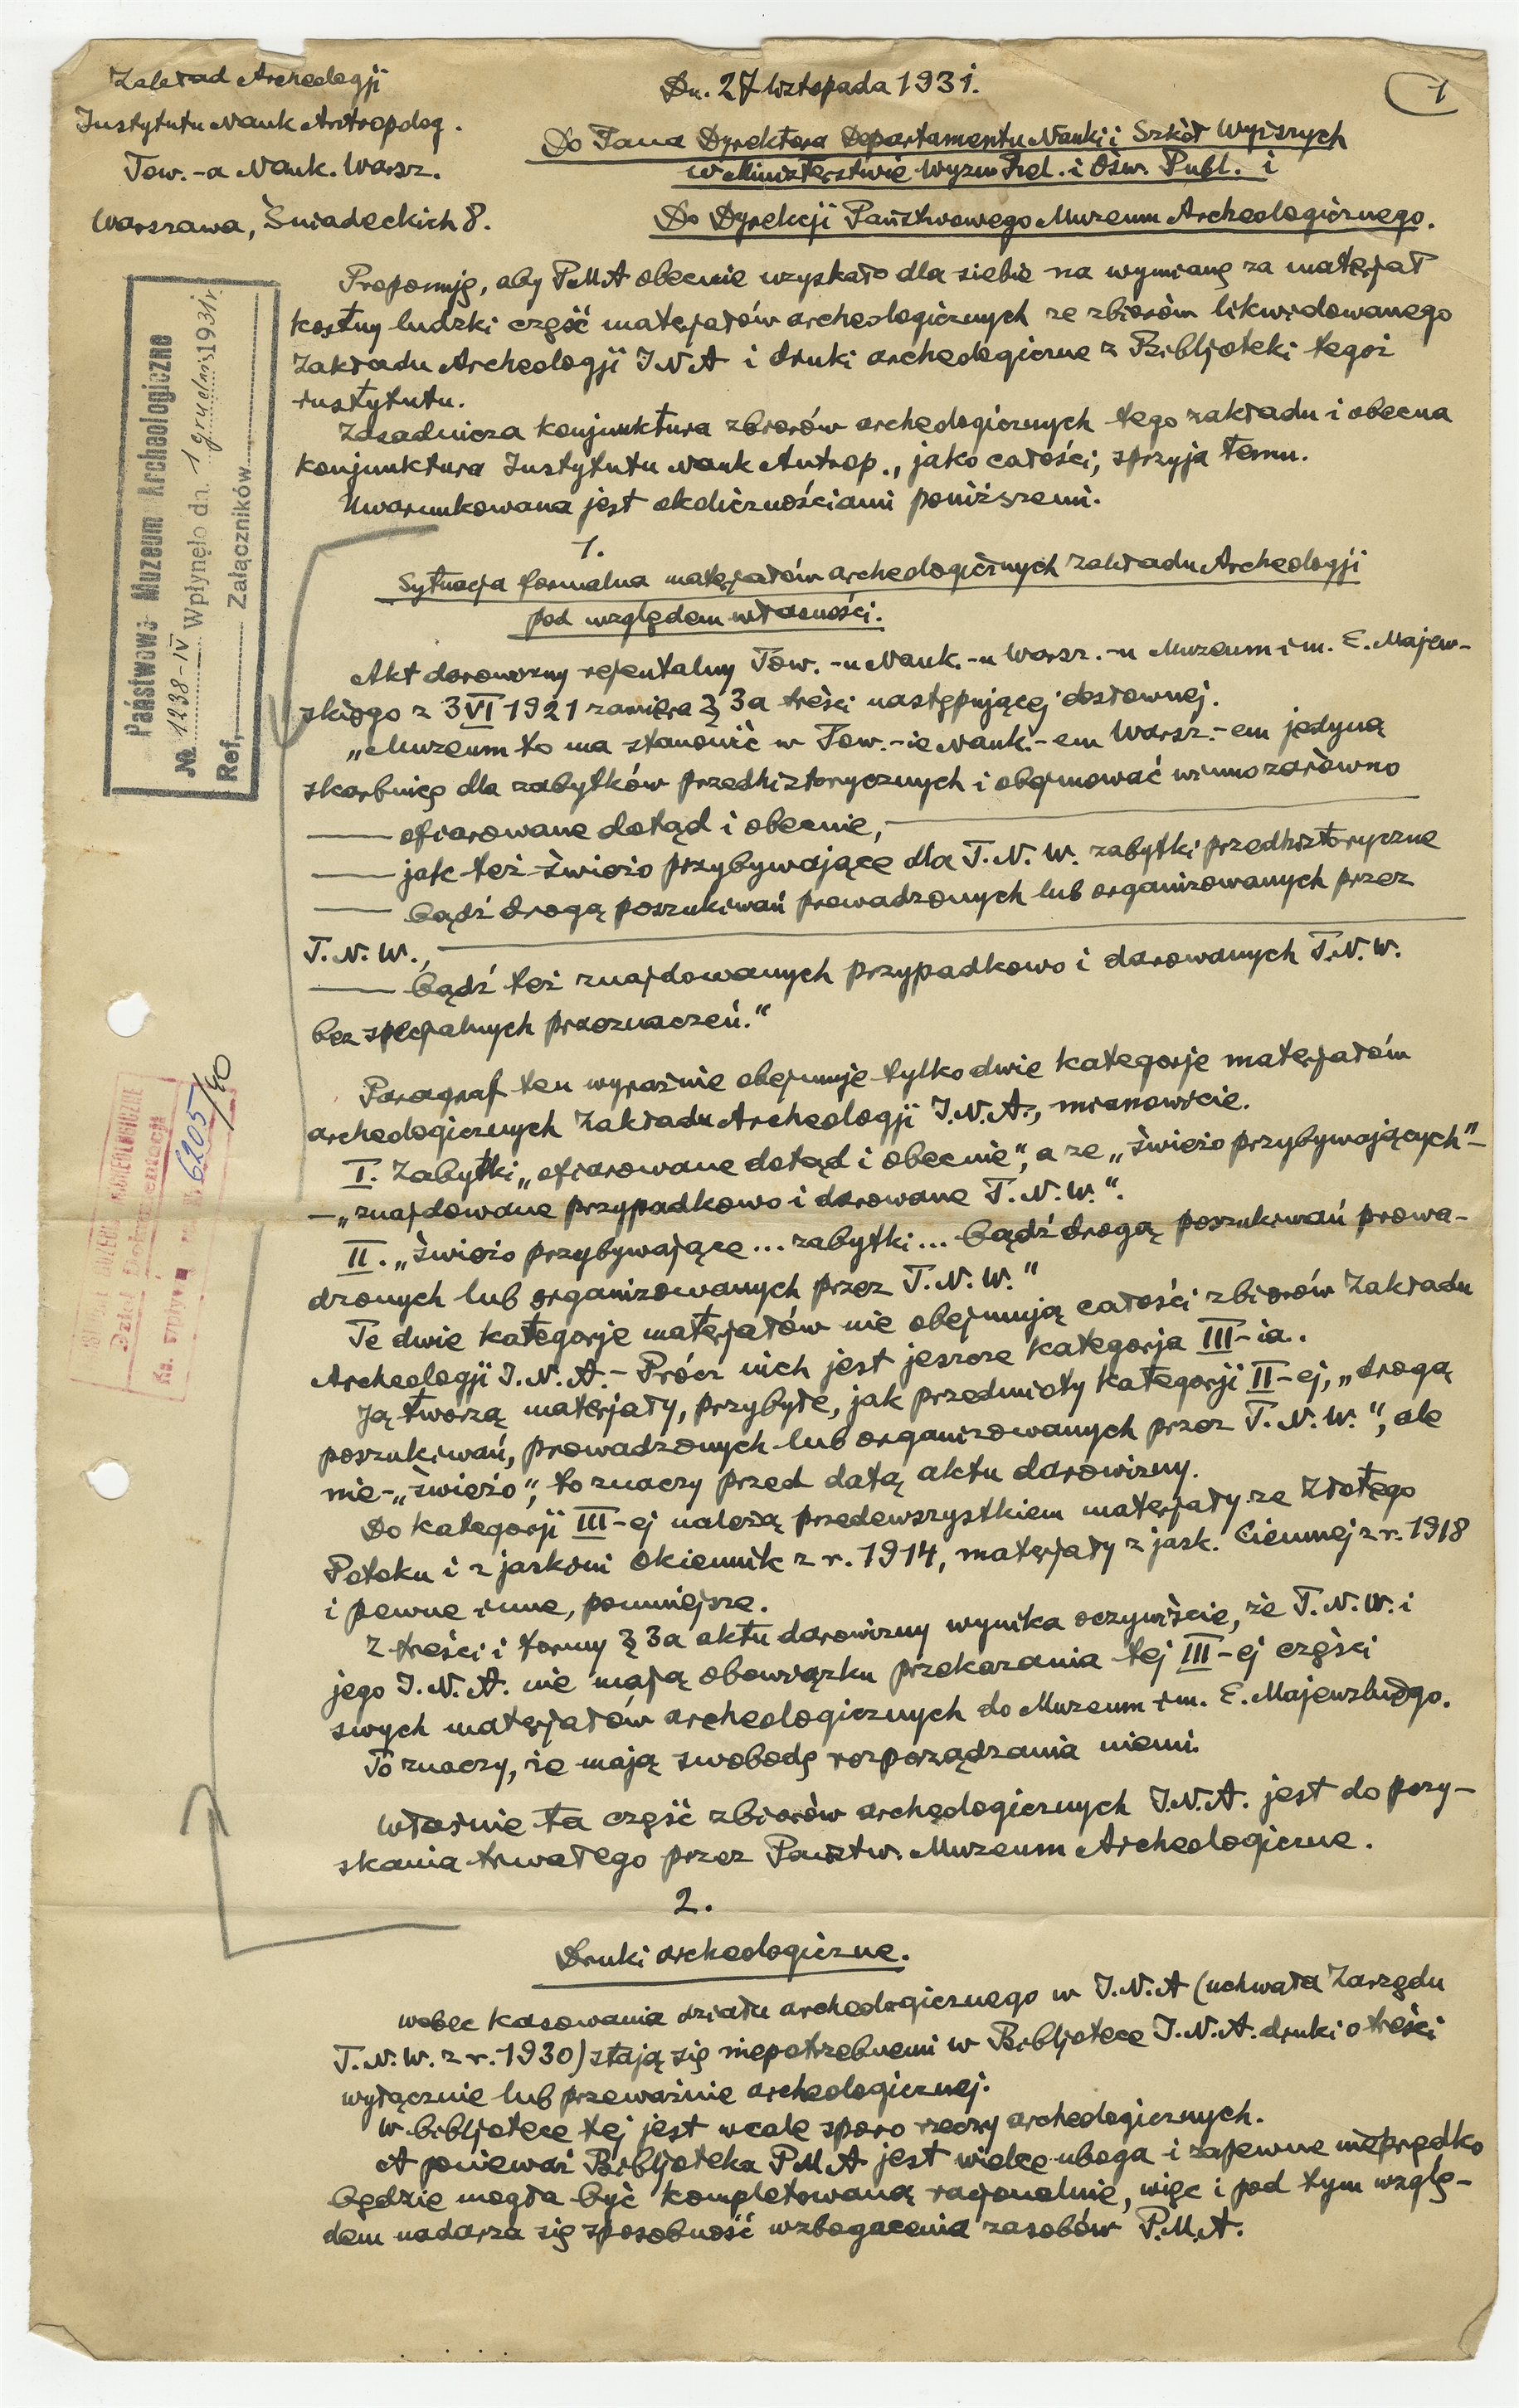 Zakład Archeologji
Instytutu Nauk Antropolog.
Tow.-a Nauk. Warsz.
Warszawa, Śniadeckich 8.
Dn. 27 listopada 1931.
1
Do Pana Dyrektora Departamentu Nauki i Szkół Wyższych
w Ministerstwie Wyzn. Rel. i Ośw. Publ. i
Do Dyrekcji Państwowego Muzeum Archeologicznego.
Państwowe Muzeum Archeologiczne
№ 1238-IV Wpłynęło dn. 1 grudnia 1931 r.
Ref. Załączników
Proponuję, aby PMA obecnie uzyskało dla siebie na wymianę za materjał
kostny ludzki część materjałów archeologicznych ze zbiorów likwidowanego
Zakładu Archeologji INA i druki archeologiczne z Bibljoteki tegoż
instytutu.
Zasadnicza konjunktura zbiorów archeologicznych tego zakładu i obecna
konjunktura Instytutu Nauk Antrop., jako całości, sprzyja temu.
Uwarunkowana jest okolicznościami poniższemi.
1.
Sytuacja formalna materjałów archeologicznych Zakładu Archeologji
pod względem własności.
Akt darowizny rejentalny Tow.-u Nauk.-u Warsz.-u Muzeum im. E. Majew-
skiego z 3 VI 1921 zawiera § 3a treści następującej dosłownej.
„Muzeum to ma stanowić w Tow.-ie Nauk.-em Warsz.-em jedyną
skarbnicę dla zabytków przedhistorycznych i obejmować winno zarówno
— ofiarowane dotąd i obecnie, —
— jak też świeżo przybywające dla T.N.W. zabytki przedhistoryczne
— bądź drogą poszukiwań prowadzonych lub organizowanych przez
T.N.W., —
— bądź też znajdowanych przypadkowo i darowanych T.N.W.
bez specjalnych przeznaczeń.“
Paragraf ten wyraźnie obejmuje tylko dwie kategorje materjałów
archeologicznych Zakładu Archeologji I.N.A., mianowicie.
I. Zabytki „ofiarowane dotąd i obecnie“, a ze „świeżo przybywających“ –
– „znajdowane przypadkowo i darowane T.N.W.“.
II. „świeżo przybywające... zabytki... bądź drogą poszukiwań prowa-
dzonych lub organizowanych przez T.N.W.“
Te dwie kategorje materjałów nie obejmują całości zbiorów Zakładu
Archeologji I.N.A. – Prócz nich jest jeszcze kategorja III-ia.
Ją tworzą materjały, przybyłe, jak przedmioty kategorji II-ej, „drogą
poszukiwań, prowadzonych lub organizowanych przez T.N.W.“, ale
nie – „świeżo“, to znaczy przed datą aktu darowizny.
Do kategorji III-ej należą przedewszystkiem materjały ze Złotego
Potoku i z jaskini Okiennik z r. 1914, materjały z jask. Ciemnej z r. 1918
i pewne inne, pomniejsze.
Z treści i formy § 3a aktu darowizny wynika oczywiście, że T.N.W. i
jego I.N.A. nie mają obowiązku przekazania tej III-ej części
swych materjałów archeologicznych do Muzeum im. E. Majewskiego.
To znaczy, że mają swobodę rozporządzania niemi.
Właśnie ta część zbiorów archeologicznych I.N.A. jest do pozy-
skania trwałego przez Państw. Muzeum Archeologiczne.
2.
Druki archeologiczne.
Wobec kasowania działu archeologicznego w I.N.A (uchwała Zarządu
T.N.W. z r. 1930) stają się niepotrzebnemi w Bibljotece I.N.A. druki o treści
wyłącznie lub przeważnie archeologicznej.
W bibljotece tej jest wcale sporo rzeczy archeologicznych.
A ponieważ Bibljoteka PMA jest wielce uboga i zapewne nieprędko
będzie mogła być kompletowaną racjonalnie, więc i pod tym wzglę-
dem nadarza się sposobność wzbogacenia zasobów P.M.A.
ARCHEOLOGICZNE
Dział Dokumentacji
Ks. wpływu 6205/80